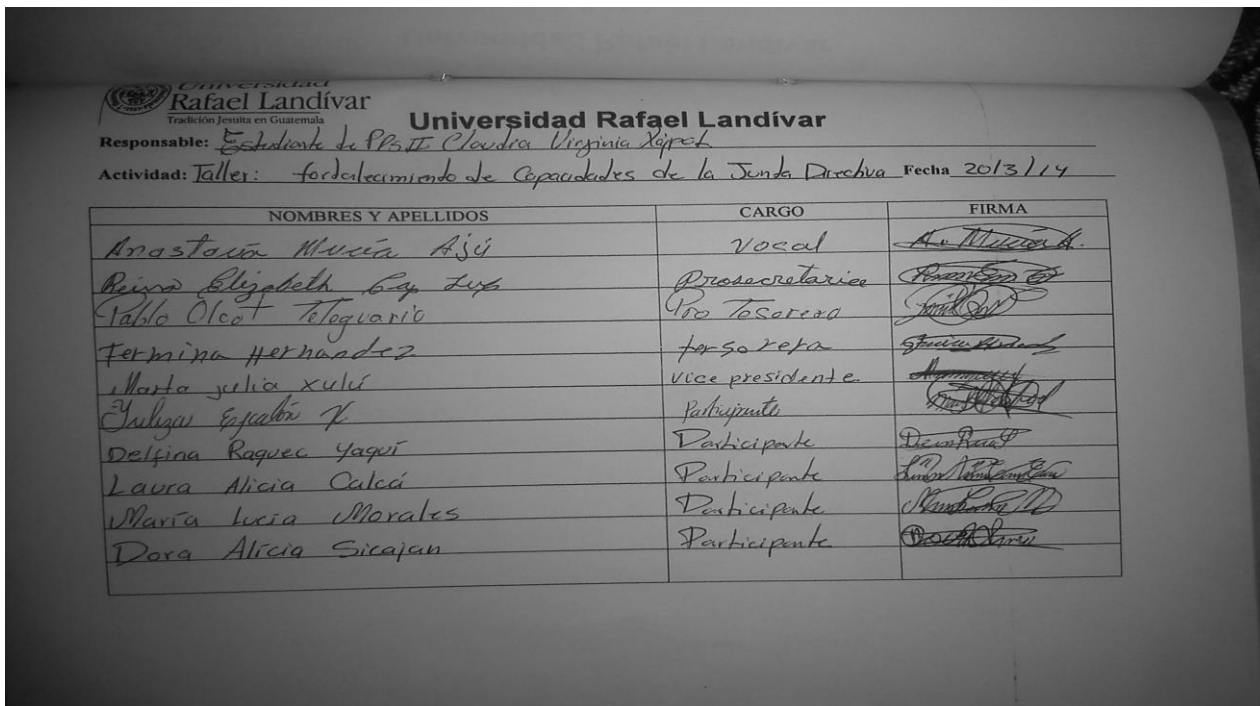 Universidad
Rafael Landívar
Tradición Jesuita en Guatemala
Universidad Rafael Landívar
Responsable: Estudiante de PPS II Claudia Virginia Xajpot
Actividad: Taller: fortalecimiento de Capacidades de la Junta Directiva Fecha 20/3/14
NOMBRES Y APELLIDOS CARGO FIRMA
Anastacia Mucía Ajú Vocal A. Mucía A.
Reina Elizabeth Prosecretaria
Pablo Olcot Teleguario Pro Tesorero
Fermina Hernandez tersorera
Marta julia xulú vice presidente
Yuliza Escalón X. Participante
Delfina Raquec Yaquí Participante
Laura Alicia Calcá Participante
María Lucia Morales Participante
Dora Alicia Sicajan Participante